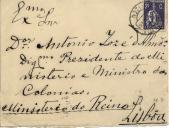 Exmo
Snr.
Dor. Antonio José d'Almda.
Digmo Presidente do Mi
nisterio e Ministro das
Colonias.
Ministerio do Reino
Lisboa